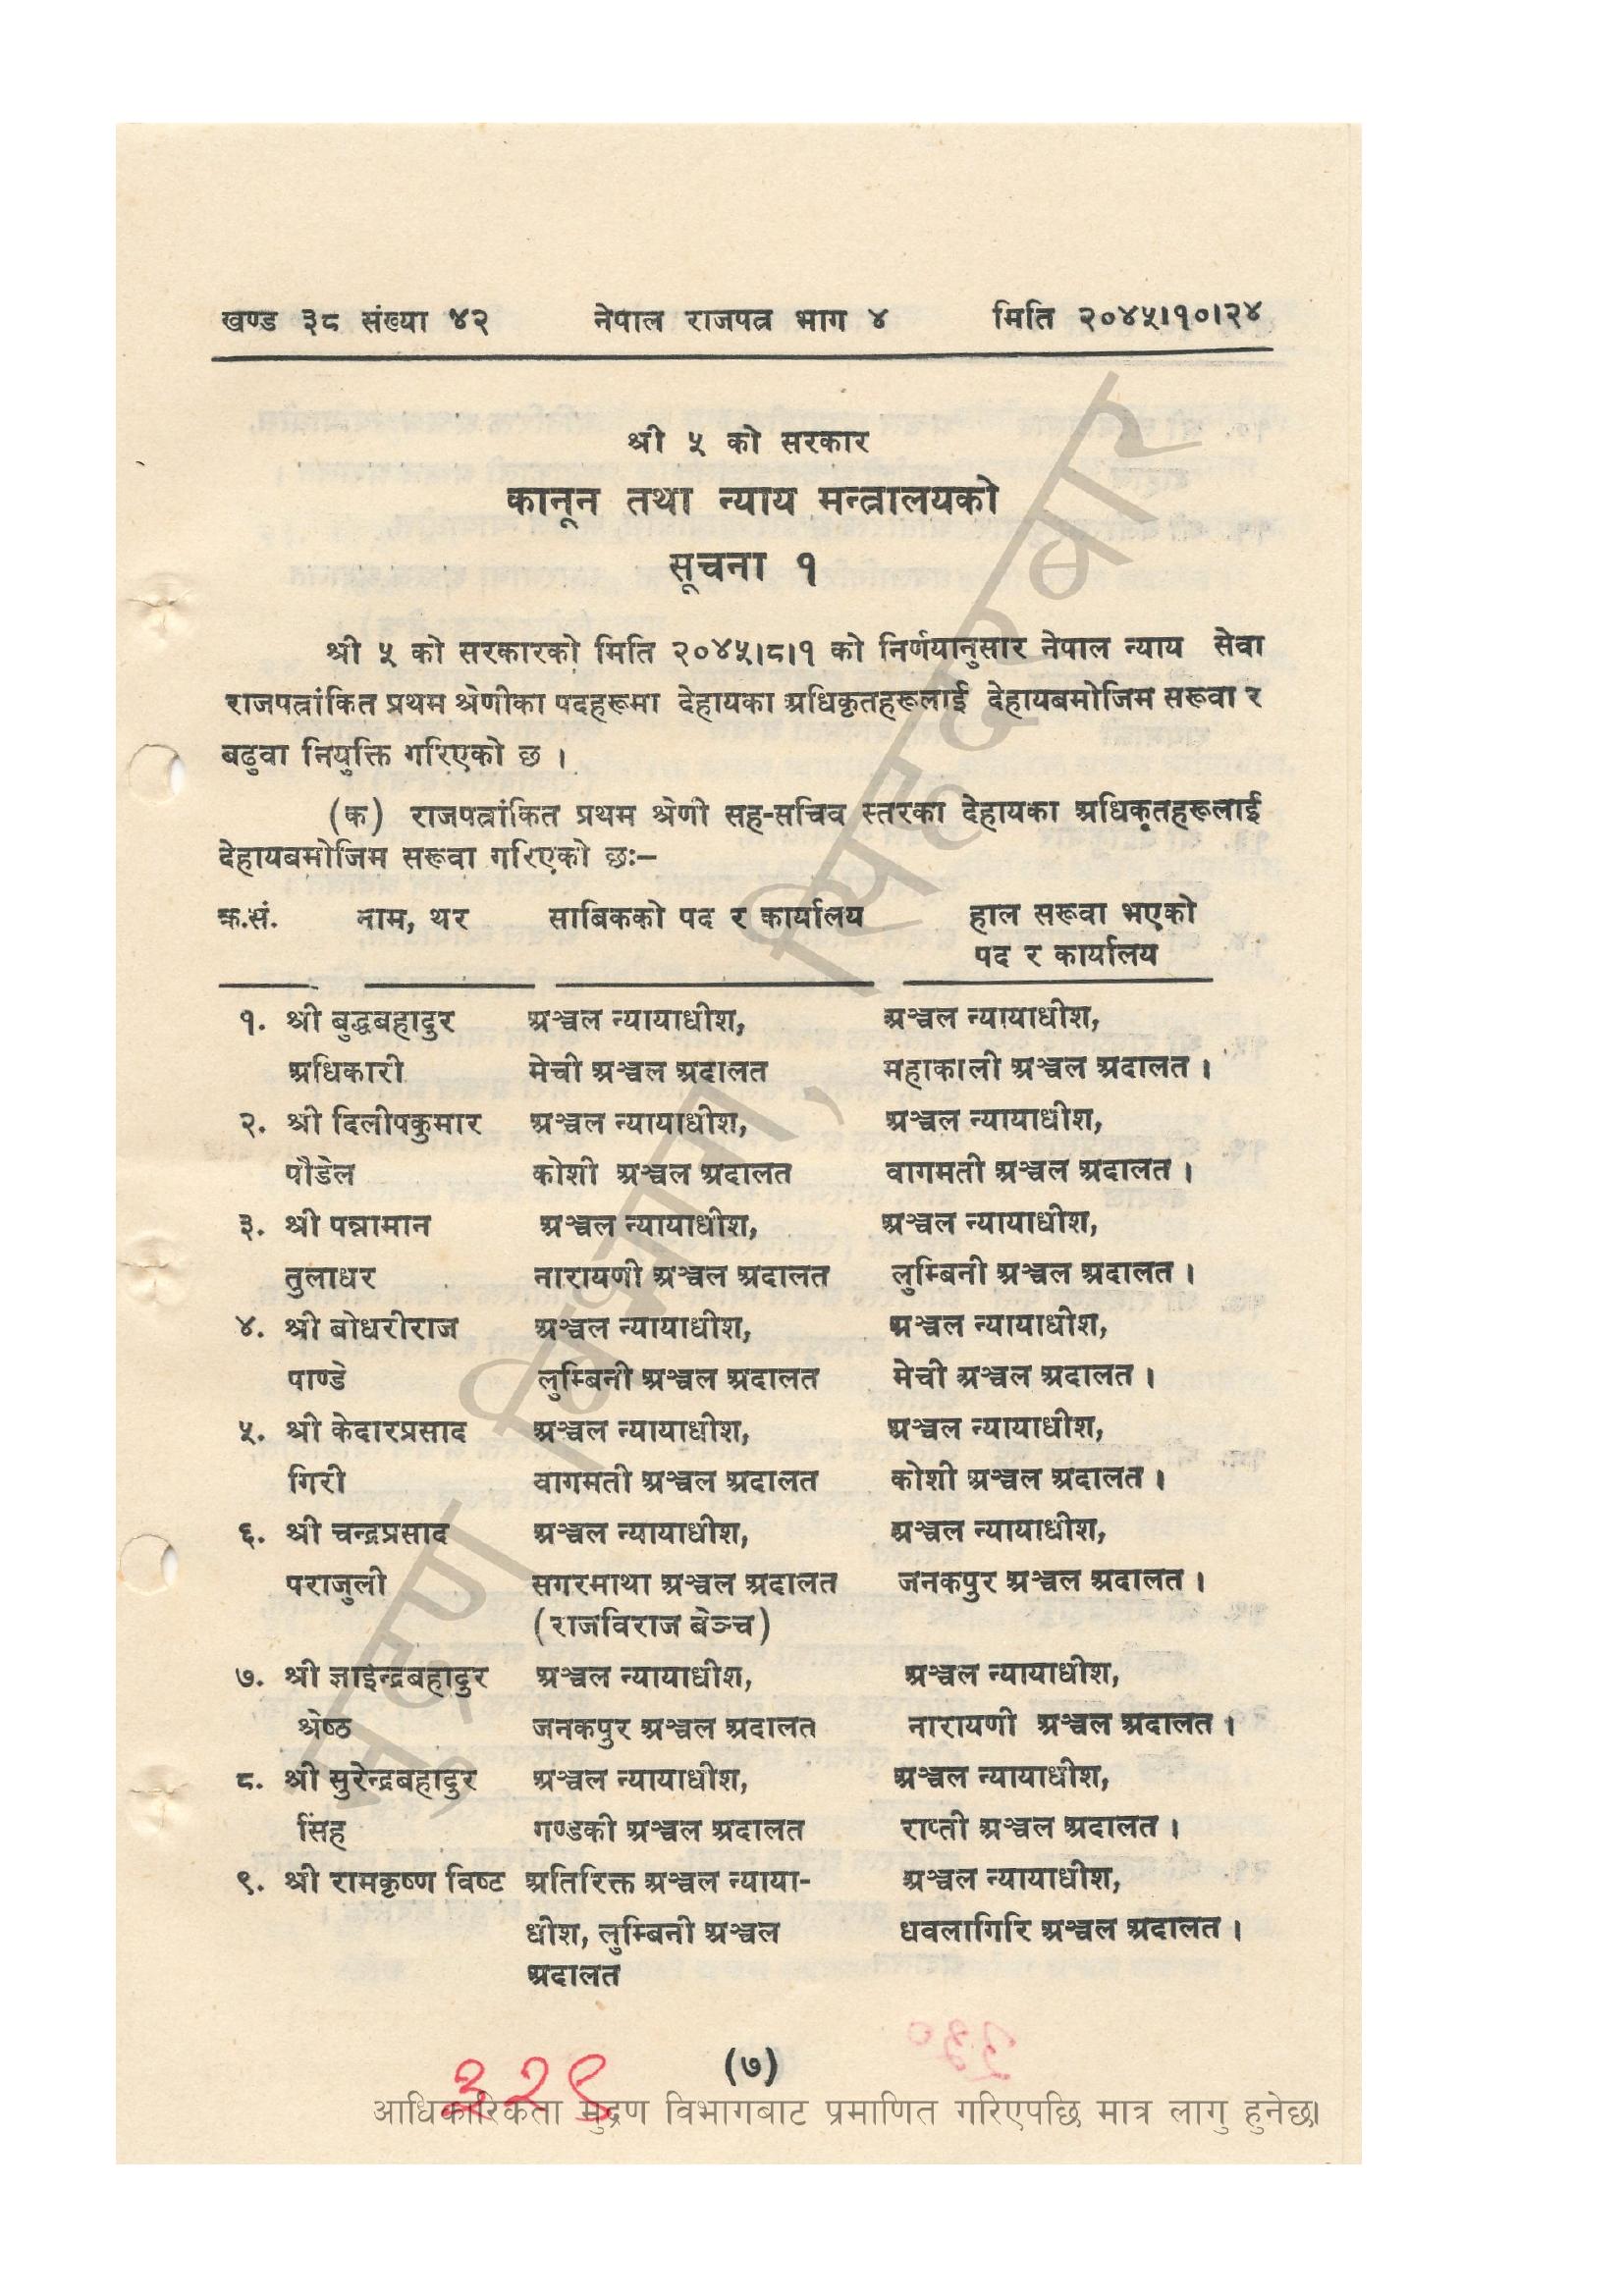 खण्ड ३८ संख्या ४२ नेपाल राजपत्र भाग ४ मिति २०४५।१०।२४
श्री ५ को सरकार
कानून तथा न्याय मन्त्रालयको
सूचना १
श्री ५ को सरकारको मिति २०४५।८।१ को निर्णयानुसार नेपाल न्याय सेवा
राजपत्रांकित प्रथम श्रेणीका पदहरूमा देहायका अधिकृतहरूलाई देहायबमोजिम सरूवा र
बढुवा नियुक्ति गरिएको छ ।
(क) राजपत्रांकित प्रथम श्रेणी सह-सचिव स्तरका देहायका अधिकृतहरूलाई
देहायबमोजिम सरूवा गरिएको छः–
क्र.सं. नाम, थर साबिकको पद र कार्यालय हाल सरूवा भएको
पद र कार्यालय
१. श्री बुद्धबहादुर अञ्चल न्यायाधीश, अञ्चल न्यायाधीश,
अधिकारी मेची अञ्चल अदालत महाकाली अञ्चल अदालत ।
२. श्री दिलीपकुमार अञ्चल न्यायाधीश, अञ्चल न्यायाधीश,
पौडेल कोशी अञ्चल अदालत वागमती अञ्चल अदालत ।
३. श्री पन्नामान अञ्चल न्यायाधीश, अञ्चल न्यायाधीश,
तुलाधर नारायणी अञ्चल अदालत लुम्बिनी अञ्चल अदालत ।
४. श्री बोधरीराज अञ्चल न्यायाधीश, अञ्चल न्यायाधीश,
पाण्डे लुम्बिनी अञ्चल अदालत मेची अञ्चल अदालत ।
५. श्री केदारप्रसाद अञ्चल न्यायाधीश, अञ्चल न्यायाधीश,
गिरी वागमती अञ्चल अदालत कोशी अञ्चल अदालत ।
६. श्री चन्द्रप्रसाद अञ्चल न्यायाधीश, अञ्चल न्यायाधीश,
पराजुली सगरमाथा अञ्चल अदालत जनकपुर अञ्चल अदालत ।
(राजविराज बेञ्च)
७. श्री ज्ञाइन्द्रबहादुर अञ्चल न्यायाधीश, अञ्चल न्यायाधीश,
श्रेष्ठ जनकपुर अञ्चल अदालत नारायणी अञ्चल अदालत ।
८. श्री सुरेन्द्रबहादुर अञ्चल न्यायाधीश, अञ्चल न्यायाधीश,
सिंह गण्डकी अञ्चल अदालत राप्ती अञ्चल अदालत ।
९. श्री रामकृष्ण विष्ट अतिरिक्त अञ्चल न्याया- अञ्चल न्यायाधीश,
धीश, लुम्बिनी अञ्चल धवलागिरि अञ्चल अदालत ।
अदालत
(७)
३२९
आधिकारिकता मुद्रण विभागबाट प्रमाणित गरिएपछि मात्र लागु हुनेछ।
मुद्रण विभाग, सिंहदरबार